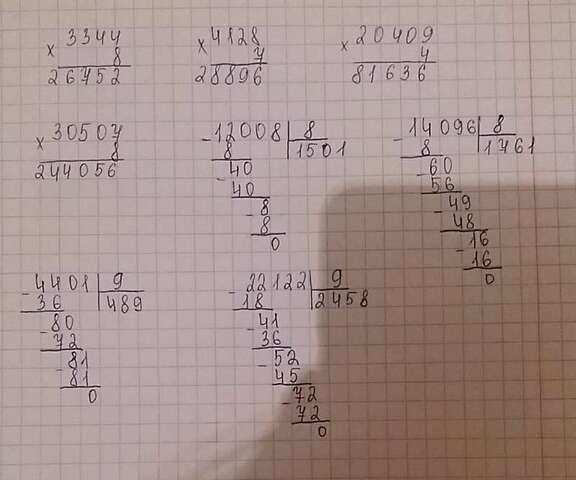 3344
× 8
26752
4128
× 7
28896
20409
× 4
81636
30507
× 8
244056
-12008 | 8
8 1501
-40
40
-8
8
0
-14096 | 8
8 1761
-60
56
-49
48
-16
16
0
-4401 | 9
36 489
-80
72
-81
81
0
-22122 | 9
18 2458
-41
36
-52
45
-72
72
0